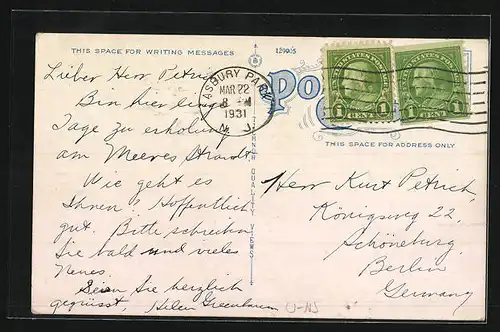 THIS SPACE FOR WRITING MESSAGES
129905
Lieber Herr Petrich
Bin hier einige
Tage zu erholung
am Meeres Strandt.
Wie geht es
Ihnen? Hoffentlich
gut. Bitte schreiben
Sie bald und vieles
Neues.
Seien Sie herzlich
gegrüsst, Helen Greenbaum
ASBURY PARK
MAR 22
8 M
1931
N. J.
UNITED STATES POSTAGE
1 CENT 1
UNITED STATES POSTAGE
1 CENT 1
QUALITY VIEWS
THIS SPACE FOR ADDRESS ONLY
Herr Kurt Petrich,
Königsweg 22,
Schöneburg,
Berlin
Germany
U-NJ